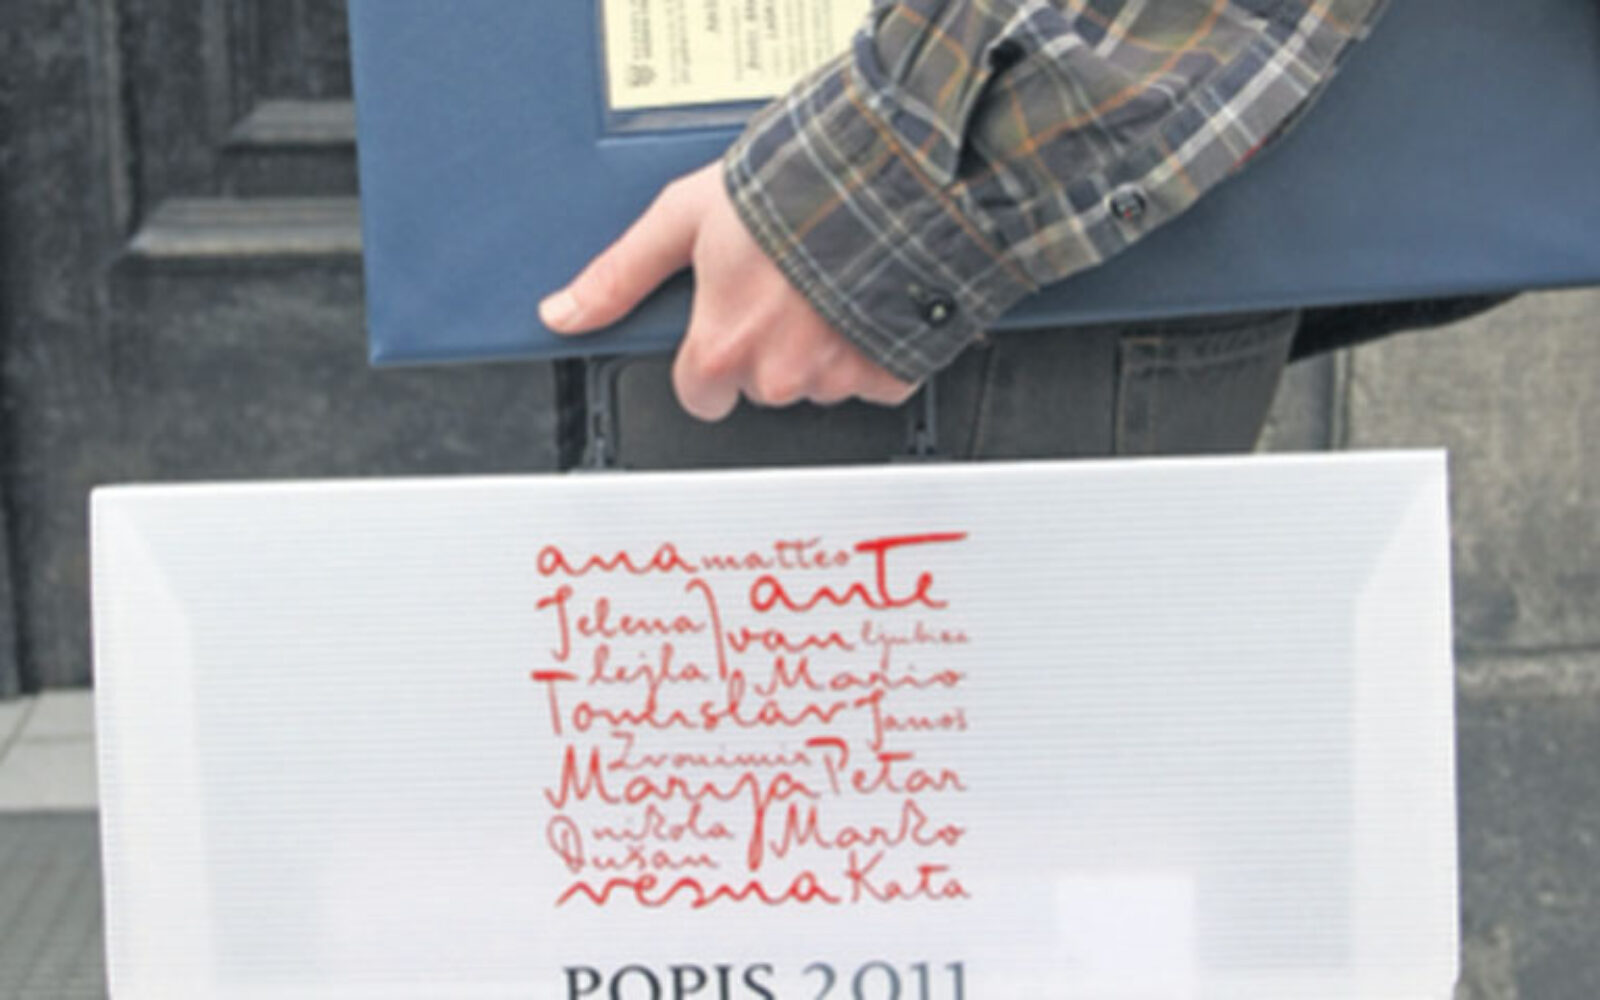 ana matteo
ante
Jelena Ivan ljubica
lejla Mario
Tomislav Janoš
Zvonimir
Marija Petar
nikola Marko
Dušan
vesna Kata
POPIS 2011